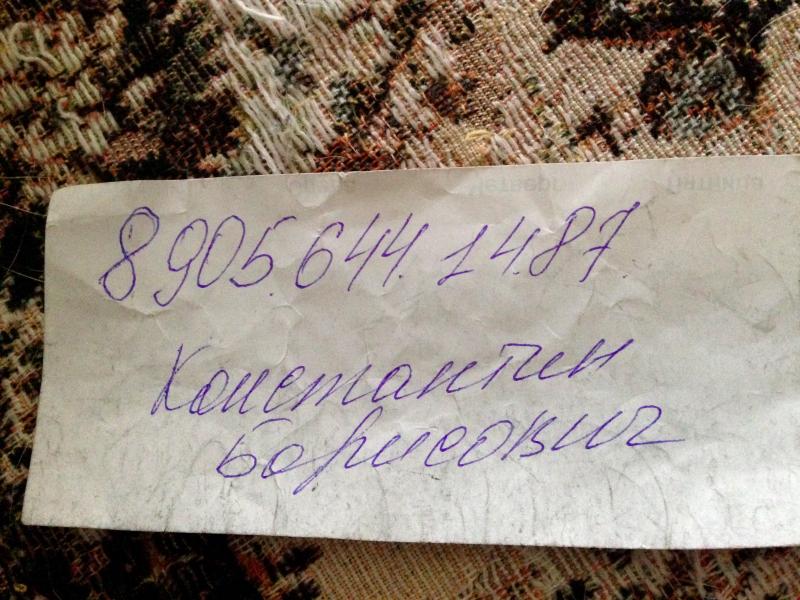 8905.644.14.87
Константин
Борисович